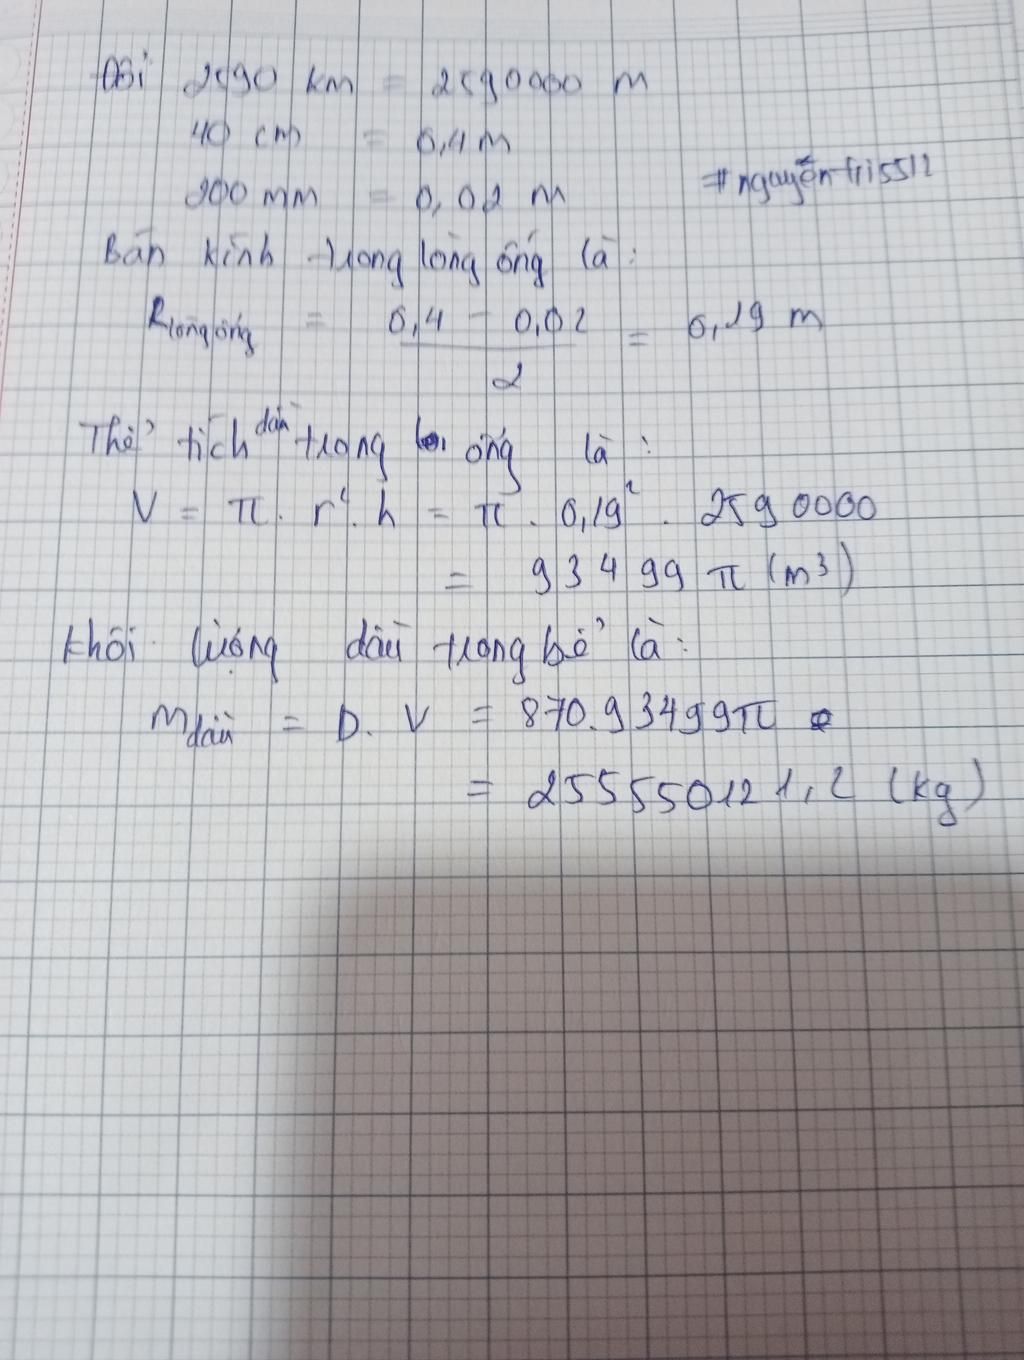 Đổi 2590 km = 2590000 m
40 cm = 0,4 m
200 mm = 0,02 m
#nguyễntri5512
Bán kính trong lòng ống là:
R lòng ống = (0,4 - 0,02)/2 = 0,19 m
Thể tích dầu trong ống là:
V = π. r². h = π . 0,19² . 2590000
= 93499 π (m³)
Khối lượng dầu trong bể là:
m dầu = D. V = 870.93499π
= 255550121,2 (kg)